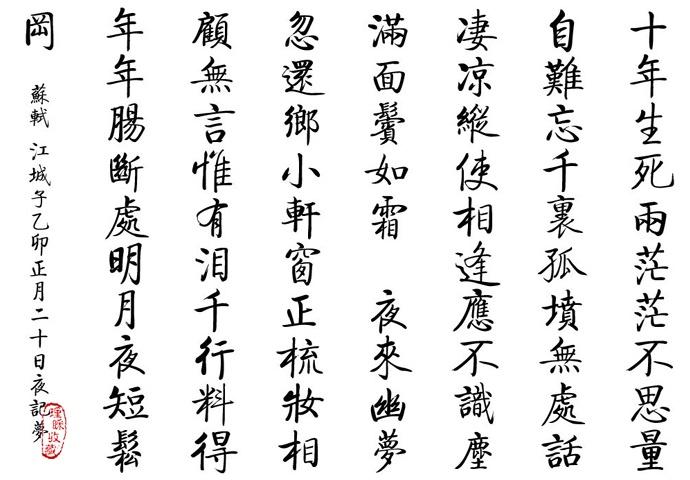 十年生死兩茫茫不思量
自難忘千裏孤墳無處話
凄凉縱使相逢應不識塵
滿面鬢如霜 夜來幽夢
忽還鄉小軒窗正梳妝相
顧無言惟有泪千行料得
年年腸斷處明月夜短鬆
岡
蘇軾 江城子乙卯正月二十日夜記夢